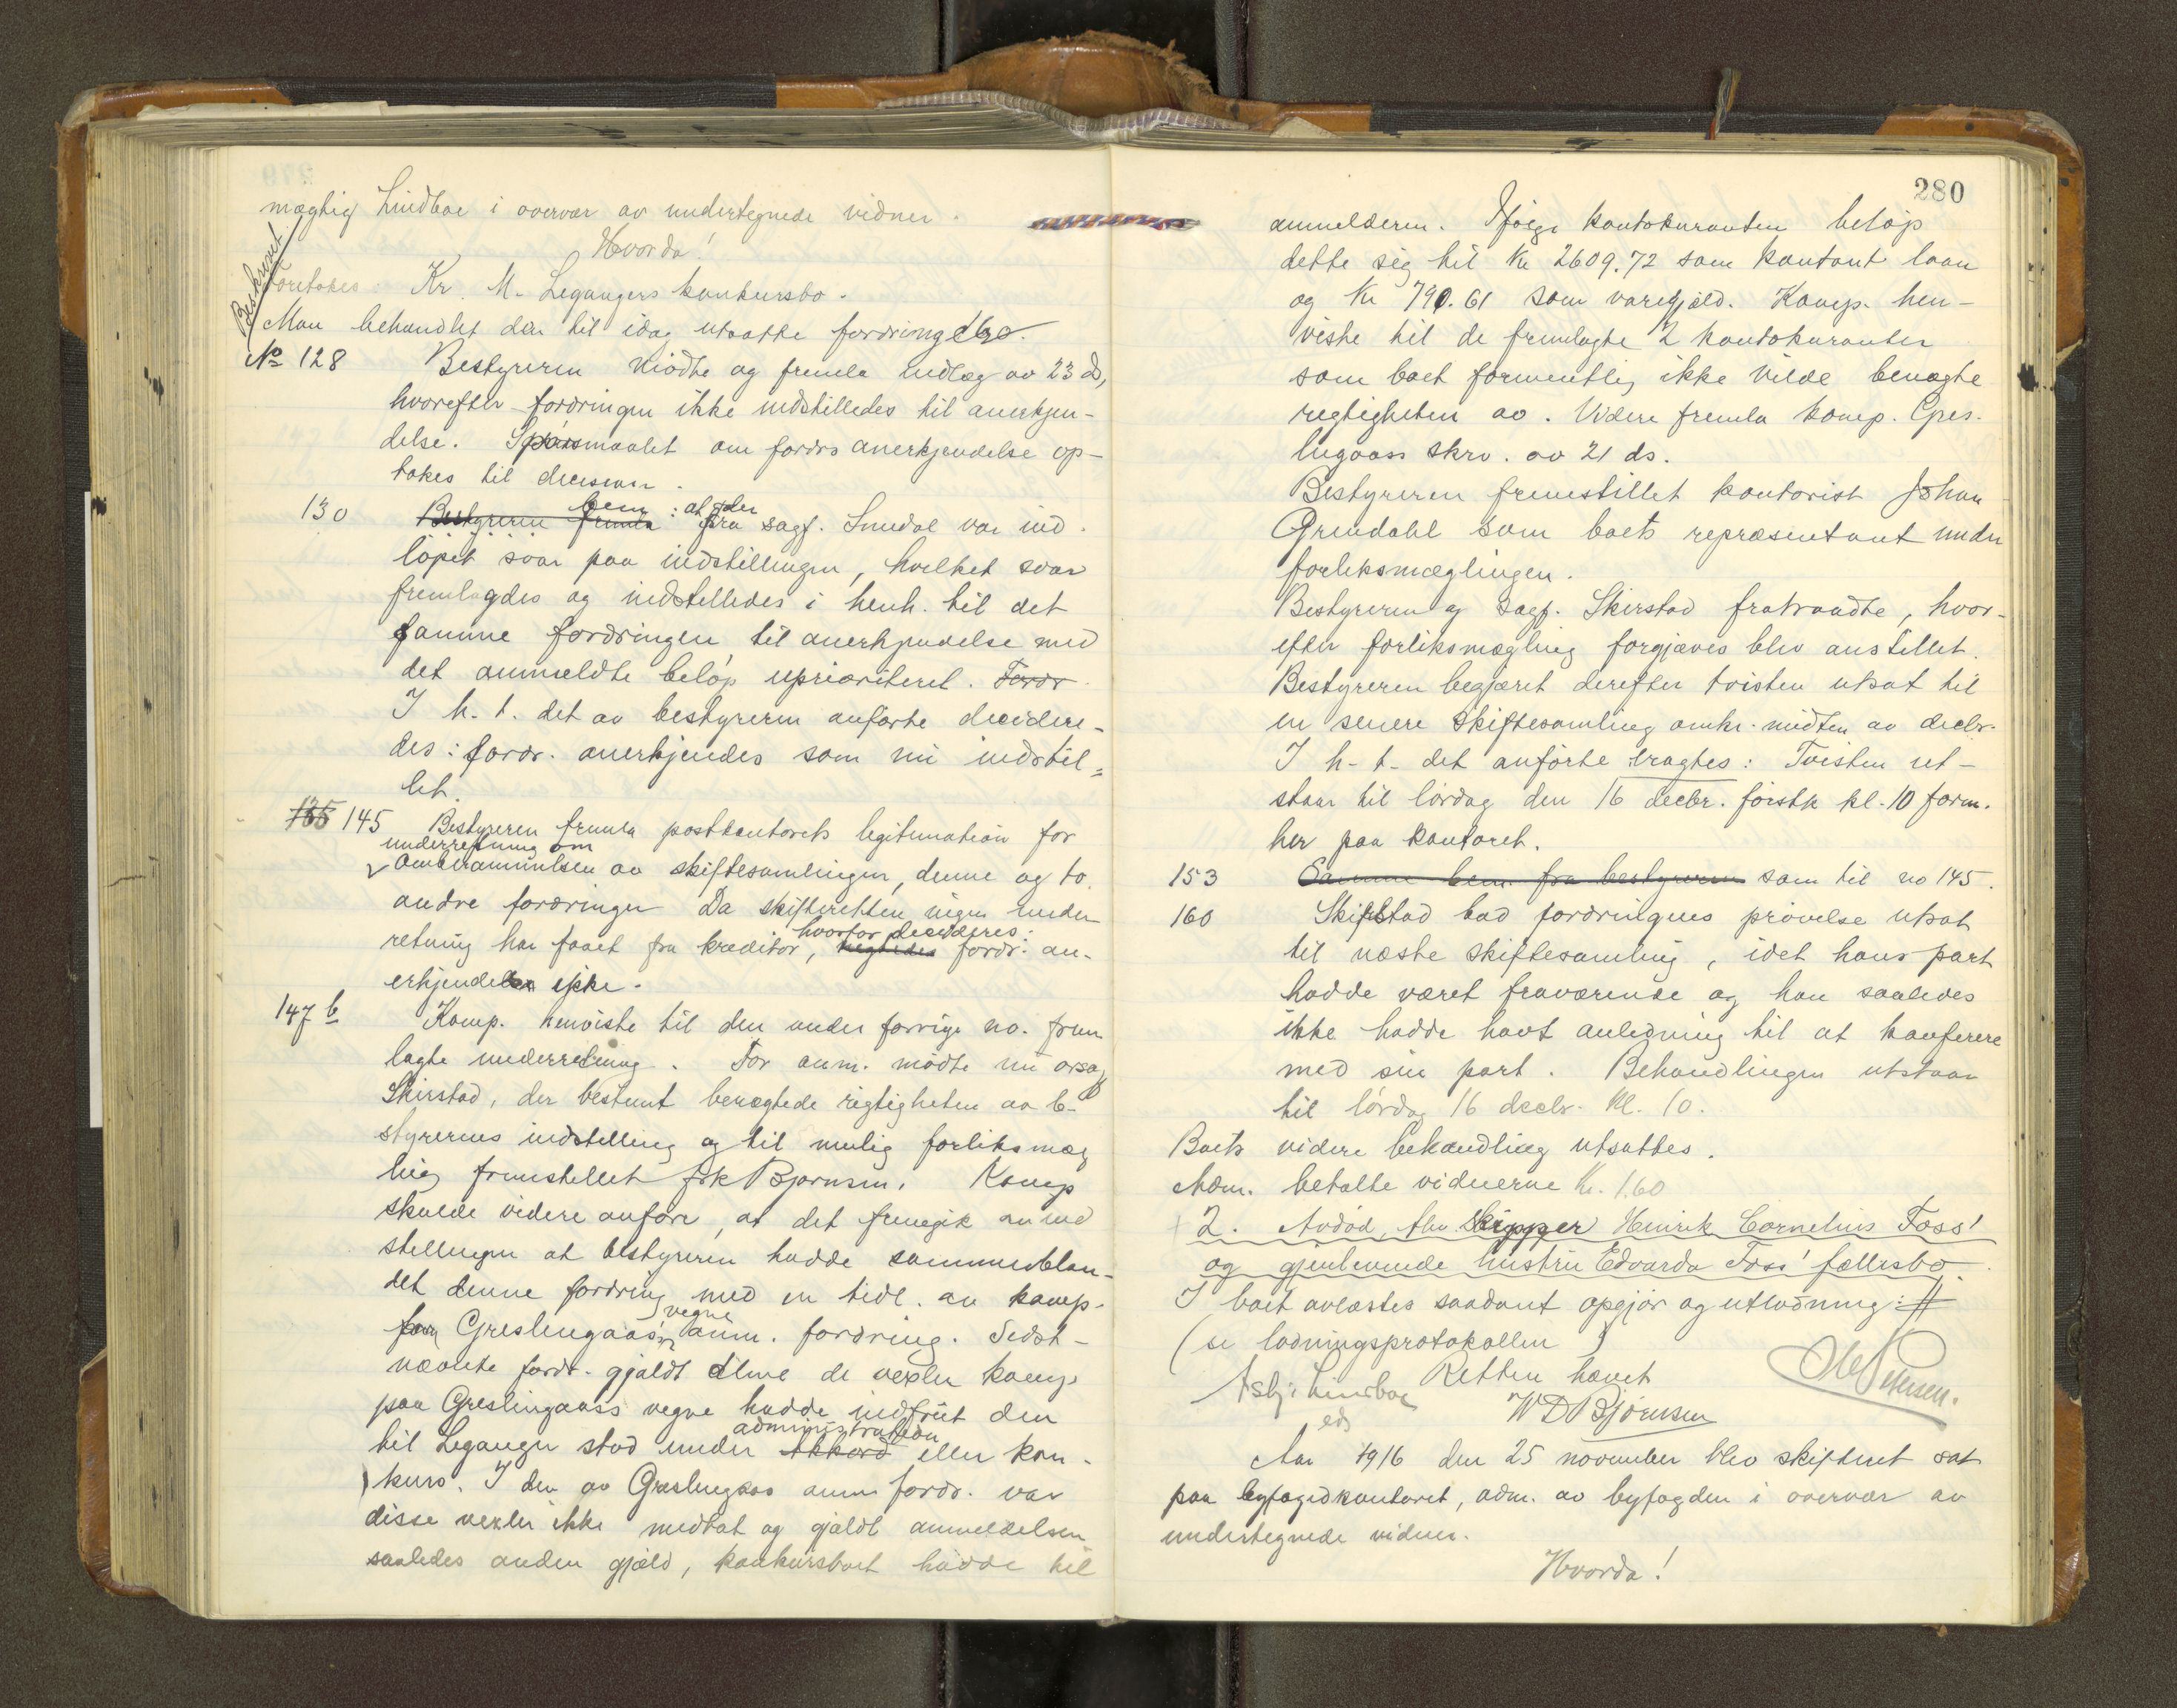 mægtig Lindboe i overvær av undertegnede vidner.
Hvorda!
Beskrevet
Foretokes: Kr. M. Legangers konkursbo.
Man behandlet den til idag utsatte fordringer
No 128 Bestyreren mødte og fremla indlæg av 23 ds,
hvorefter fordringen ikke indstilledes til anerkjen-
delse. Spørsmaalet om fordrs anerkjendelse op-
tokes til decision.
130 Bestyreren bem: at der fra sagf. Smedal var ind-
løpet svar paa indstillingen, hvilket svar
fremlagdes og indstilledes i henh. til det
samme fordringen til anerkjendelse med
det anmeldte beløp uprioriteret. Fordr
I h. t. det av bestyreren anførte decidere-
des: fordr. anerkjendes som nu indstil-
let.
135 145 Bestyreren fremla postkontorets legitimation for
underretning om
omberammelsen av skiftesamlingen, denne og to
andre fordringer Da skifteretten ingen under
retning har faaet fra kreditor, hvorfor decideres: fordr. an-
erkjendes ikke.
147 b Komp. henviste til den under forrige no. frem
lagte underretning. For anm. mødte nu orsagf
Skirstad, der bestemt benægtede rigtigheten av be-
styrerens indstilling og til mulig forliksmæg
ling fremstillet frk Bjørnsen. Komp
skulde videre anføre, at det fremgik av ind
stillingen at bestyreren hadde sammenblan-
det denne fordring med en tidl. av komp.
paa Greslingaas's vegne anm. fordring. Sidst-
nævnte fordr. gjaldt alene de vexler komp
paa Greslingaass vegne hadde indfriet den
til Leganger stod under akkord administration eller kon-
kurs. I den av Greslingaas anm fordr. var
disse vexler ikke medtat og gjaldt anmeldelsen
saaledes anden gjæld, konkursboet hadde til
280
anmelderen. Ifølge kontokuranten beløp
dette sig til Kr 2609.72 som kontant laan
og Kr 790.61 som varegjæld. Komp. hen-
viste til de fremlagte 2 kontokuranter
som boet formentlig ikke vilde benægte
rigtigheten av. Videre fremla komp. Gres-
lingaass skriv. av 21 ds.
Bestyreren fremstillet kontorist Johan
Grendahl som boets repræsentant under
forliksmæglingen.
Bestyreren og sagf. Skirstad fratraadte, hvor-
efter forliksmægling forgjæves blev anstillet.
Bestyreren begjæret derefter tvisten utsat til
en senere skiftesamling omkr. midten av decbr.
I h. t. det anførte eragtes: Tvisten ut-
staar til lørdag den 16 decbr. førstk kl. 10 form.
her paa kontoret.
153 Samme bem. fra bestyreren som til no 145.
160 Skirstad bad fordringens prøvelse utsat
til næste skiftesamling, idet hans part
hadde været fraværende og han saaledes
ikke hadde havt anledning til at konferere
med sin part. Behandlingen utstaar
til lørdag 16 decbr. kl. 10.
Boets videre behandling utsattes.
Adm. betalte vidnerne Kr. 1.60
2. Avdød fhv skipper Henrik Cornelius Foss'
og gjenlevende hustru Edvarda Foss' fællesbo.
I boet avlæstes saadant opgjør og utlodning: #
(se lodningsprotokollen)
Retten hævet
Asbj. Lindboe
ed
W D Bjørnsen
Petersen.
Aar 1916 den 25 november blev skifteret sat
paa byfogedkontoret, adm. av byfogden i overvær av
undertegnede vidner.
Hvorda!